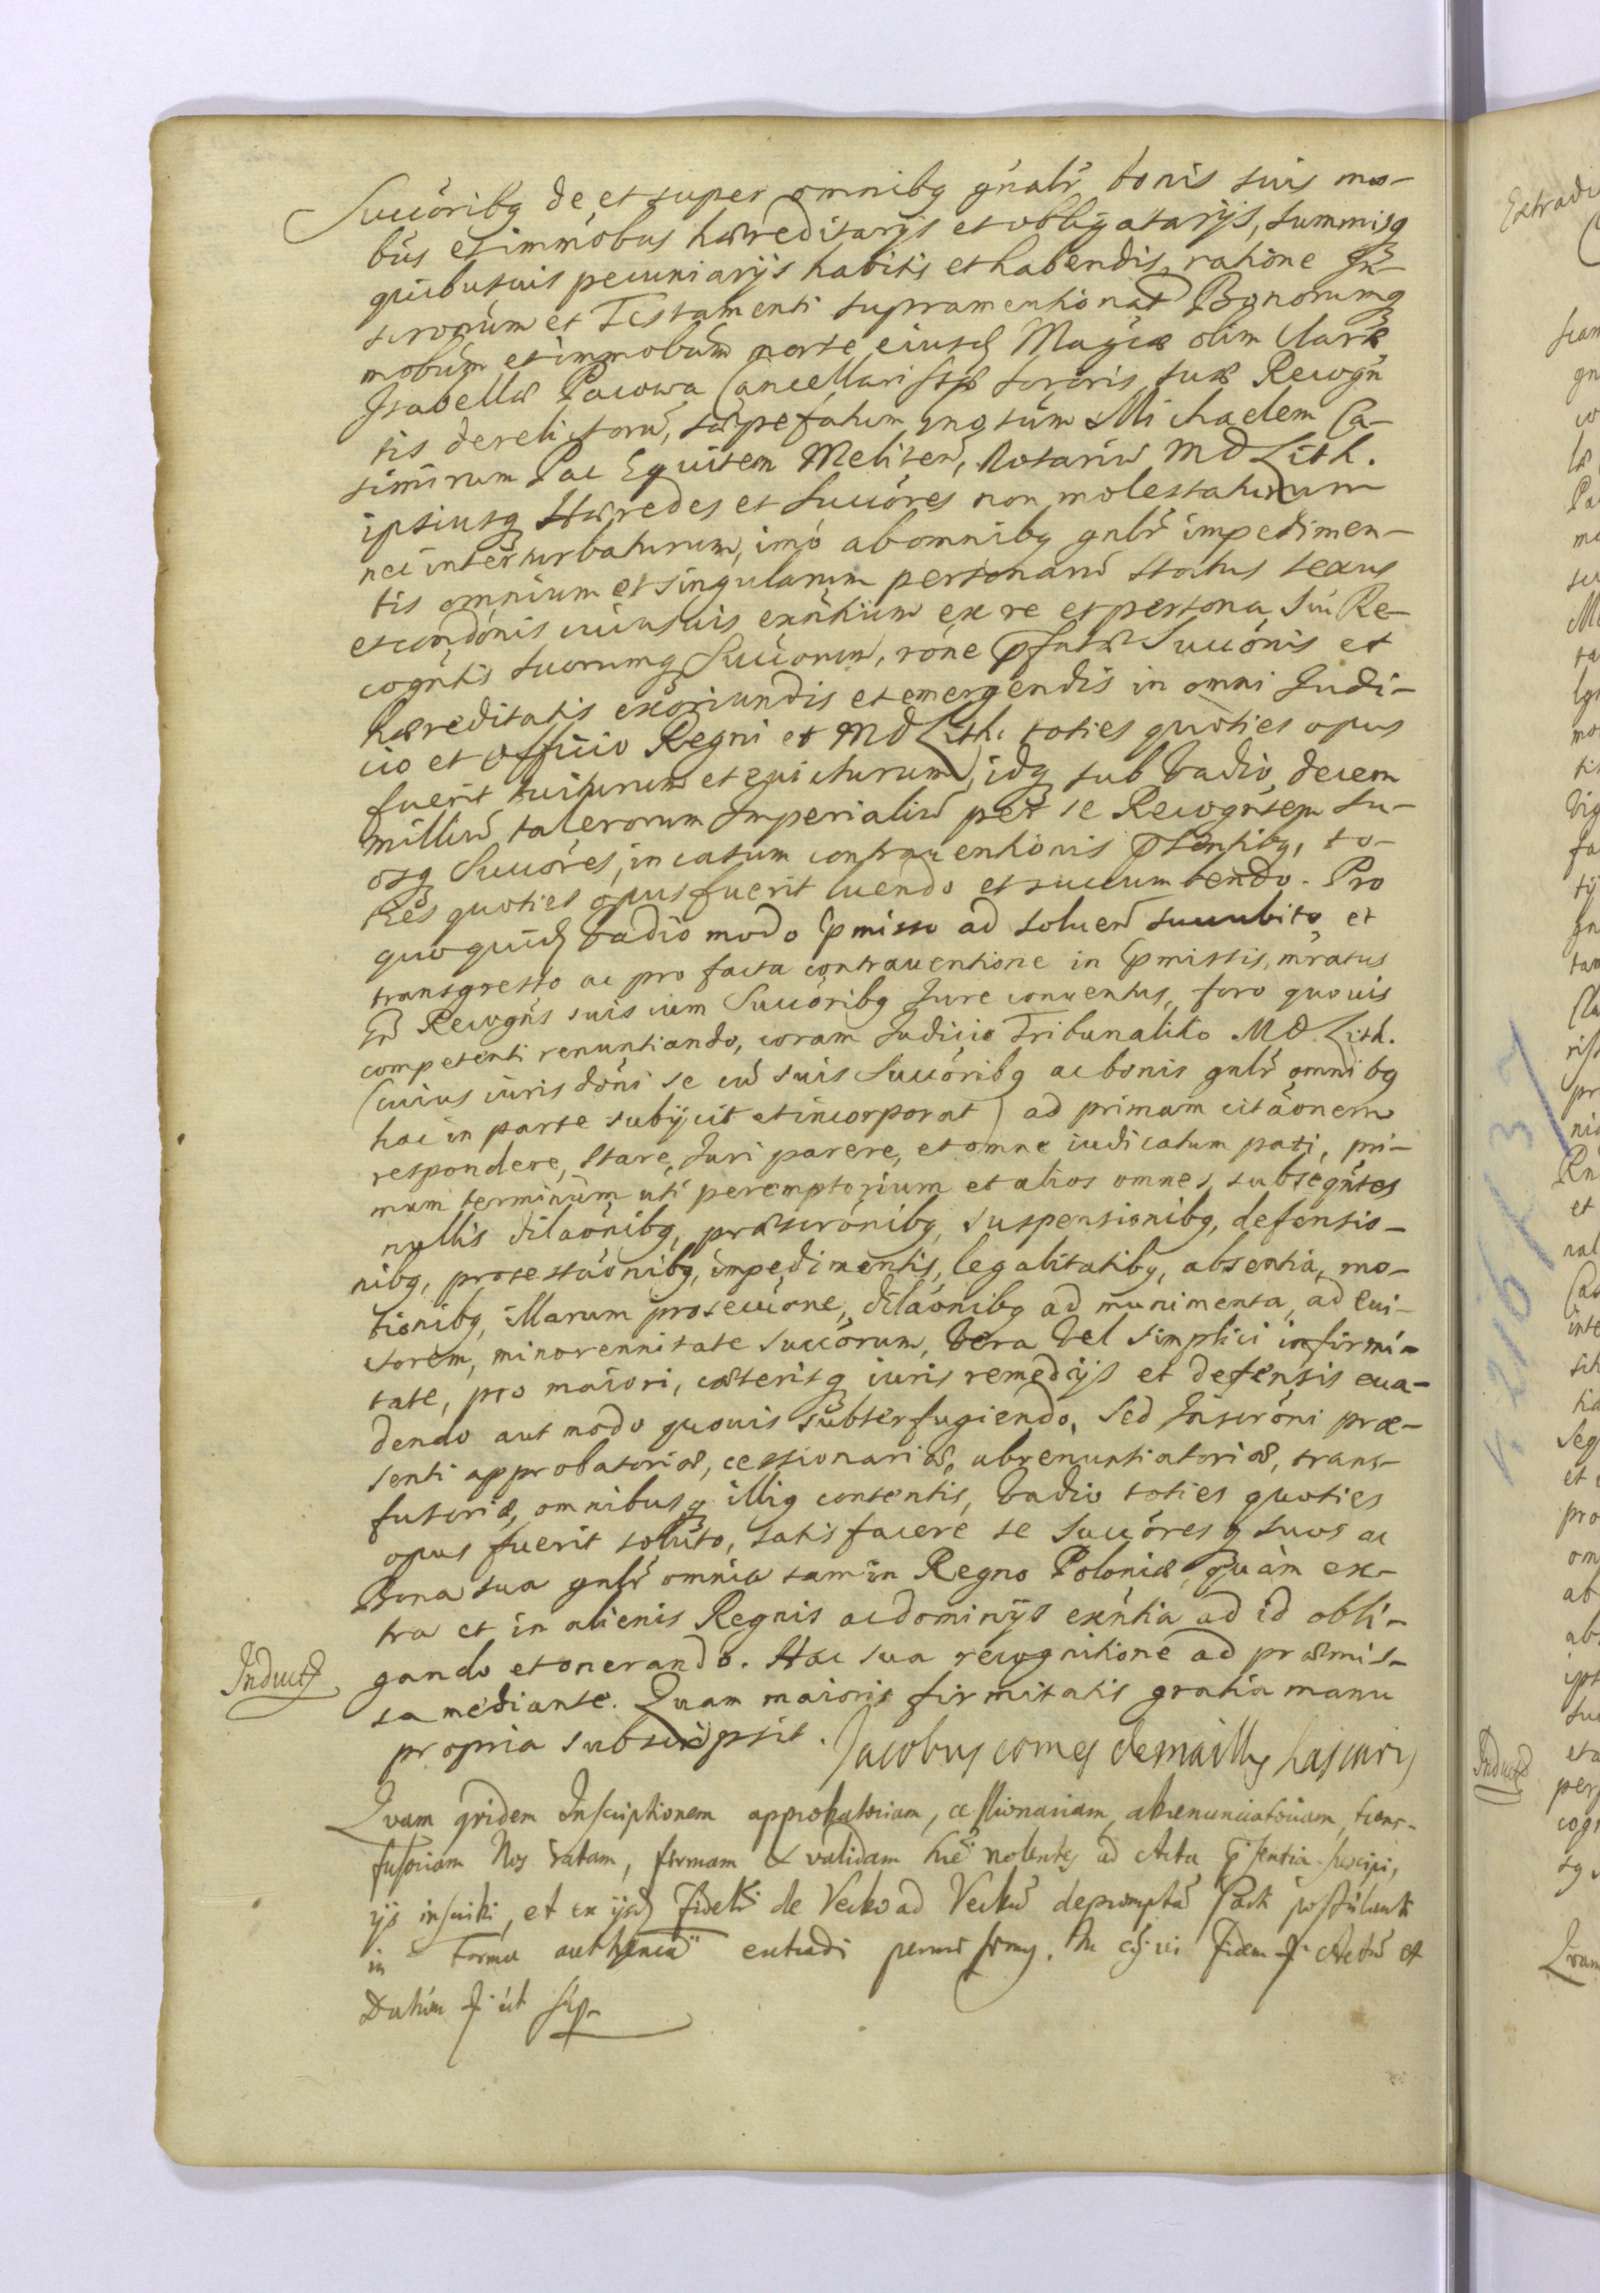 Succóribq de et super omnibq gnalr bonis suis mo-
būs et immobus hæreditarijs et obligatarijs, summisq
quibusuis pecuniarijs habitis et habendis, ratione In-
scronum et Testamenti supramentionat Bonorumq
mobum et immobum morte eiusd Magcæ olim Claræ
Isabellæ Pacowa Cancellari sororis suæ Recogn
tis derelictoru, sæpefatum Michaelem Ca-
simirum Pac Equitem Meliten, Notariu MD Lith.
ipsiusq Hæredes et Succóres non molestaturum
nec interturbaturum, imò ab omnibq gnlr impedimen-
tis omnium et singularum personaru status sexus
et condónis cuiusuis exntium ex re et persona sui Re-
cogntis suorumq Succorum, róne pfatæ Succónis et
hæreditatis exoriundis et emergendis in omni Judi-
cio et Officio Regni et MD Lith. toties quoties opus
fuerit tuiturum et euicturum, idq sub vadio decem
milliu talerorum Imperialiu per se Recogntem su-
osq Succóres, in casum contrauentionis ptentibq, to-
ties quoties opus fuerit luendo et succumbendo. Pro
quo quid vadio modo pmisso ad soluen succubito et
transgresso ac pro facta contrauentione in pmissis, mratus
Recogns suis cum Succóribq Jure conuentus, foro quouis
competenti renuntiando, coram Judicio Tribunalitio MD. Lith.
(cuius iuris dóni se cu suis Succóribq ac bonis gnlr omnibq
hac in parte subijcit et incorporat) ad primam citaónem
respondere, stare, Juri parere, et omne iudicatum pati, pri-
mum terminum uti peremptorium et alios omnes, subseqntes
nullis dilaónibq, præscrónibq, suspensionibq, defensio-
nibq, protestaónibq, impedimentis, legalitatibq, absentia, mo-
tionibq, illarum prosecuone, dilaónibq ad munimenta, ad eui-
ctorem, minorennitate succórum, vera vel simplici infirmi-
tate, pro maiori, cæterisq iuris remedijs et defensis eua-
dendo aut modo quouis subterfugiendo, sed Inscróni præ-
senti approbatoriæ, cessionariæ, abrenuntiatoriæ, trans-
fusoriæ, omnibusq illiq contentis, vadio toties quoties
opus fuerit soluto, satisfacere se Succóresq suos ac
Bona sua gnlr omnia tam in Regno Poloniæ, quàm ex-
tra et in alienis Regnis ac dominijs exntia ad id obli-
gando et onerando. Hac sua recognitione ad præmis-
Induct
sa mediante. Quam maioris firmitatis gratia manu
propria subscripsit. Jacobus comes de mailly Lascaris
Qvam qridem Inscriptionem approbatoriam, cessionariam, abrenunciatoriam, trans-
fusoriam Nos ratam, firmam & validam volentes ad Acta psentia suscipi,
ijs inscribi, et ex ijsd de Verbo ad Verbu depromptu Parti postulanti
in Forma authenca extradi permisimus. In cuius fidem Actu et
Datum ut sup